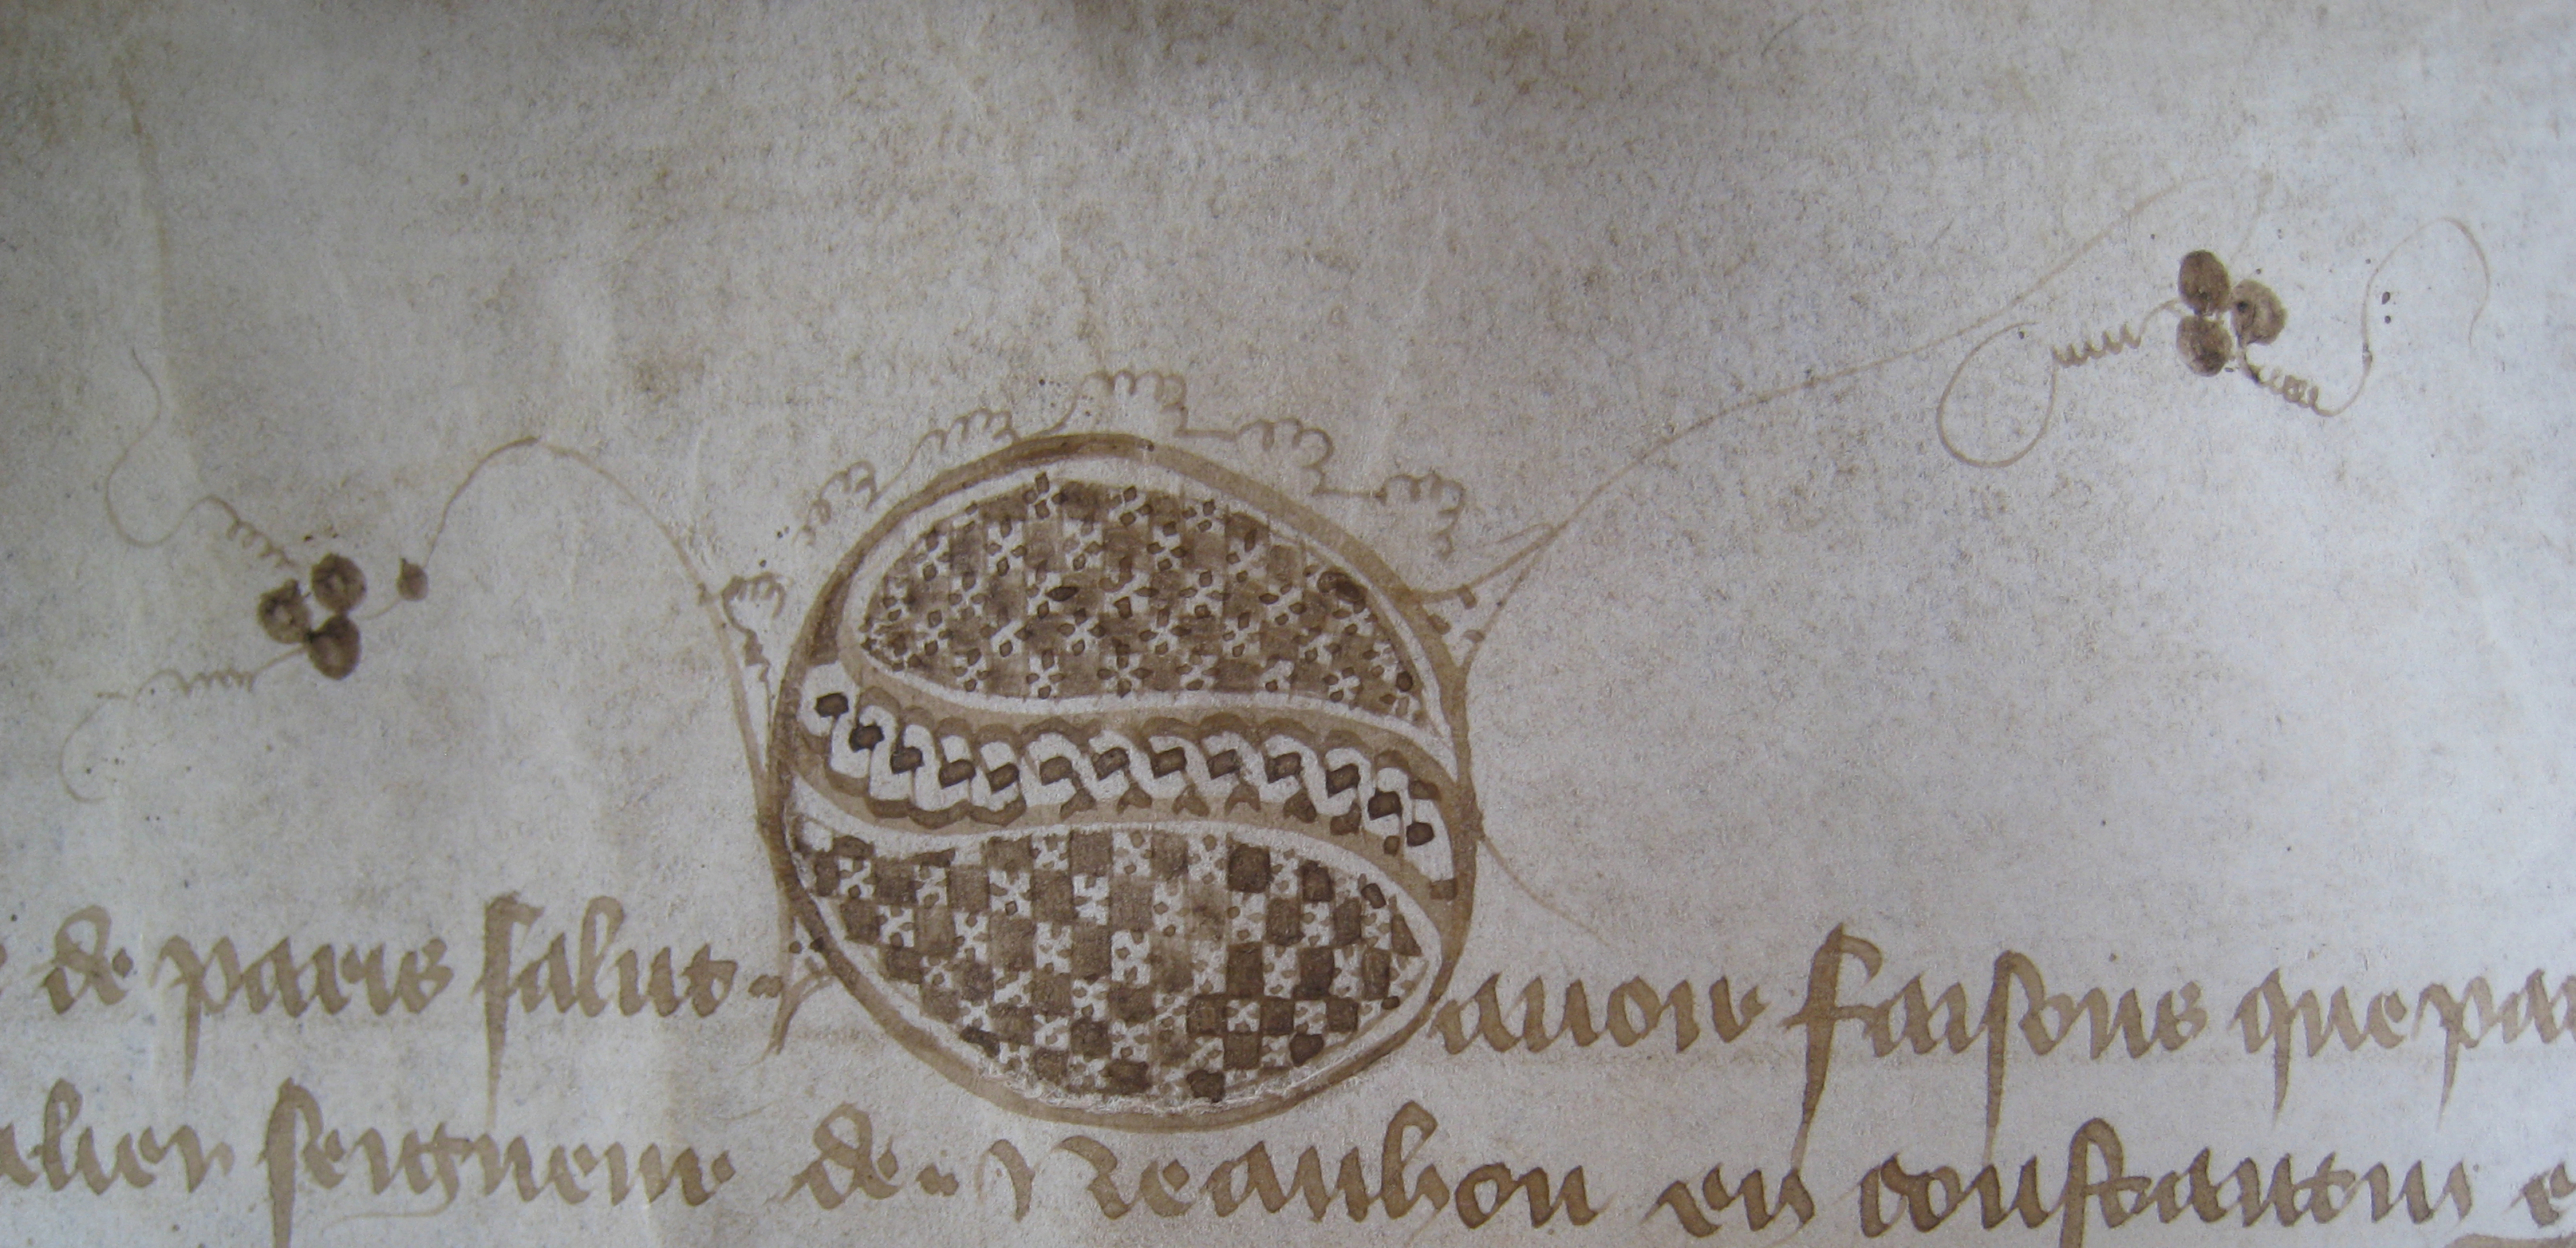 de paris salut Sauoir faisons que pa
alier seigneur de Neauhou en constantin e